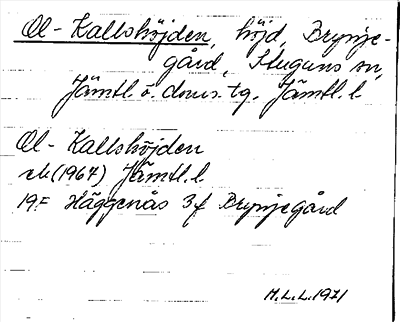 Ol-Kallshöjden, höjd, Brynje-
gård, Stuguns sn,
Jämtl. ö. doms. tg. Jämtl. l
Ol-Kallshöjden
rk (1967) Jämtl. l.
19F Häggenås 3f Brynjegård
M.L.L. 1971